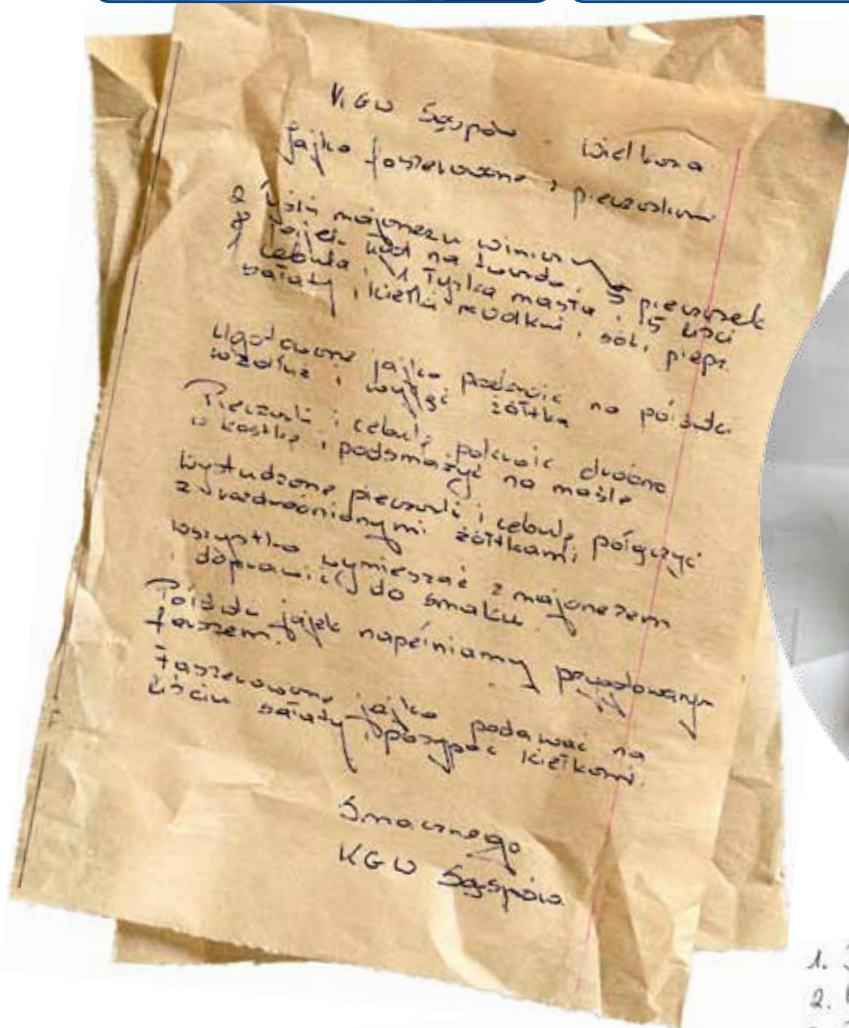 KGW Sąspów - Wielkanoc
Jajka faszerowane z pieczarkami
2 łyżki majonezu winiary
8 jajek na twardo, 5 pieczarek
1 cebula, 1 łyżka masła, 15 liści
sałaty, kiełki rzodkwi, sól, pieprz
Ugotowane jajka przekroić na połówki
wzdłuż i wyjąć żółtka
Pieczarki i cebulę pokroić drobno
w kostkę i podsmażyć na maśle
Wystudzone pieczarki i cebulę połączyć
z rozdrobnionymi żółtkami
Wszystko wymieszać z majonezem
i doprawić do smaku.
Połówki jajek napełniamy przygotowanym
farszem.
Faszerowane jajka podawać na
liściu sałaty, posypać kiełkami.
Smacznego
KGW Sąspów
1.
2.